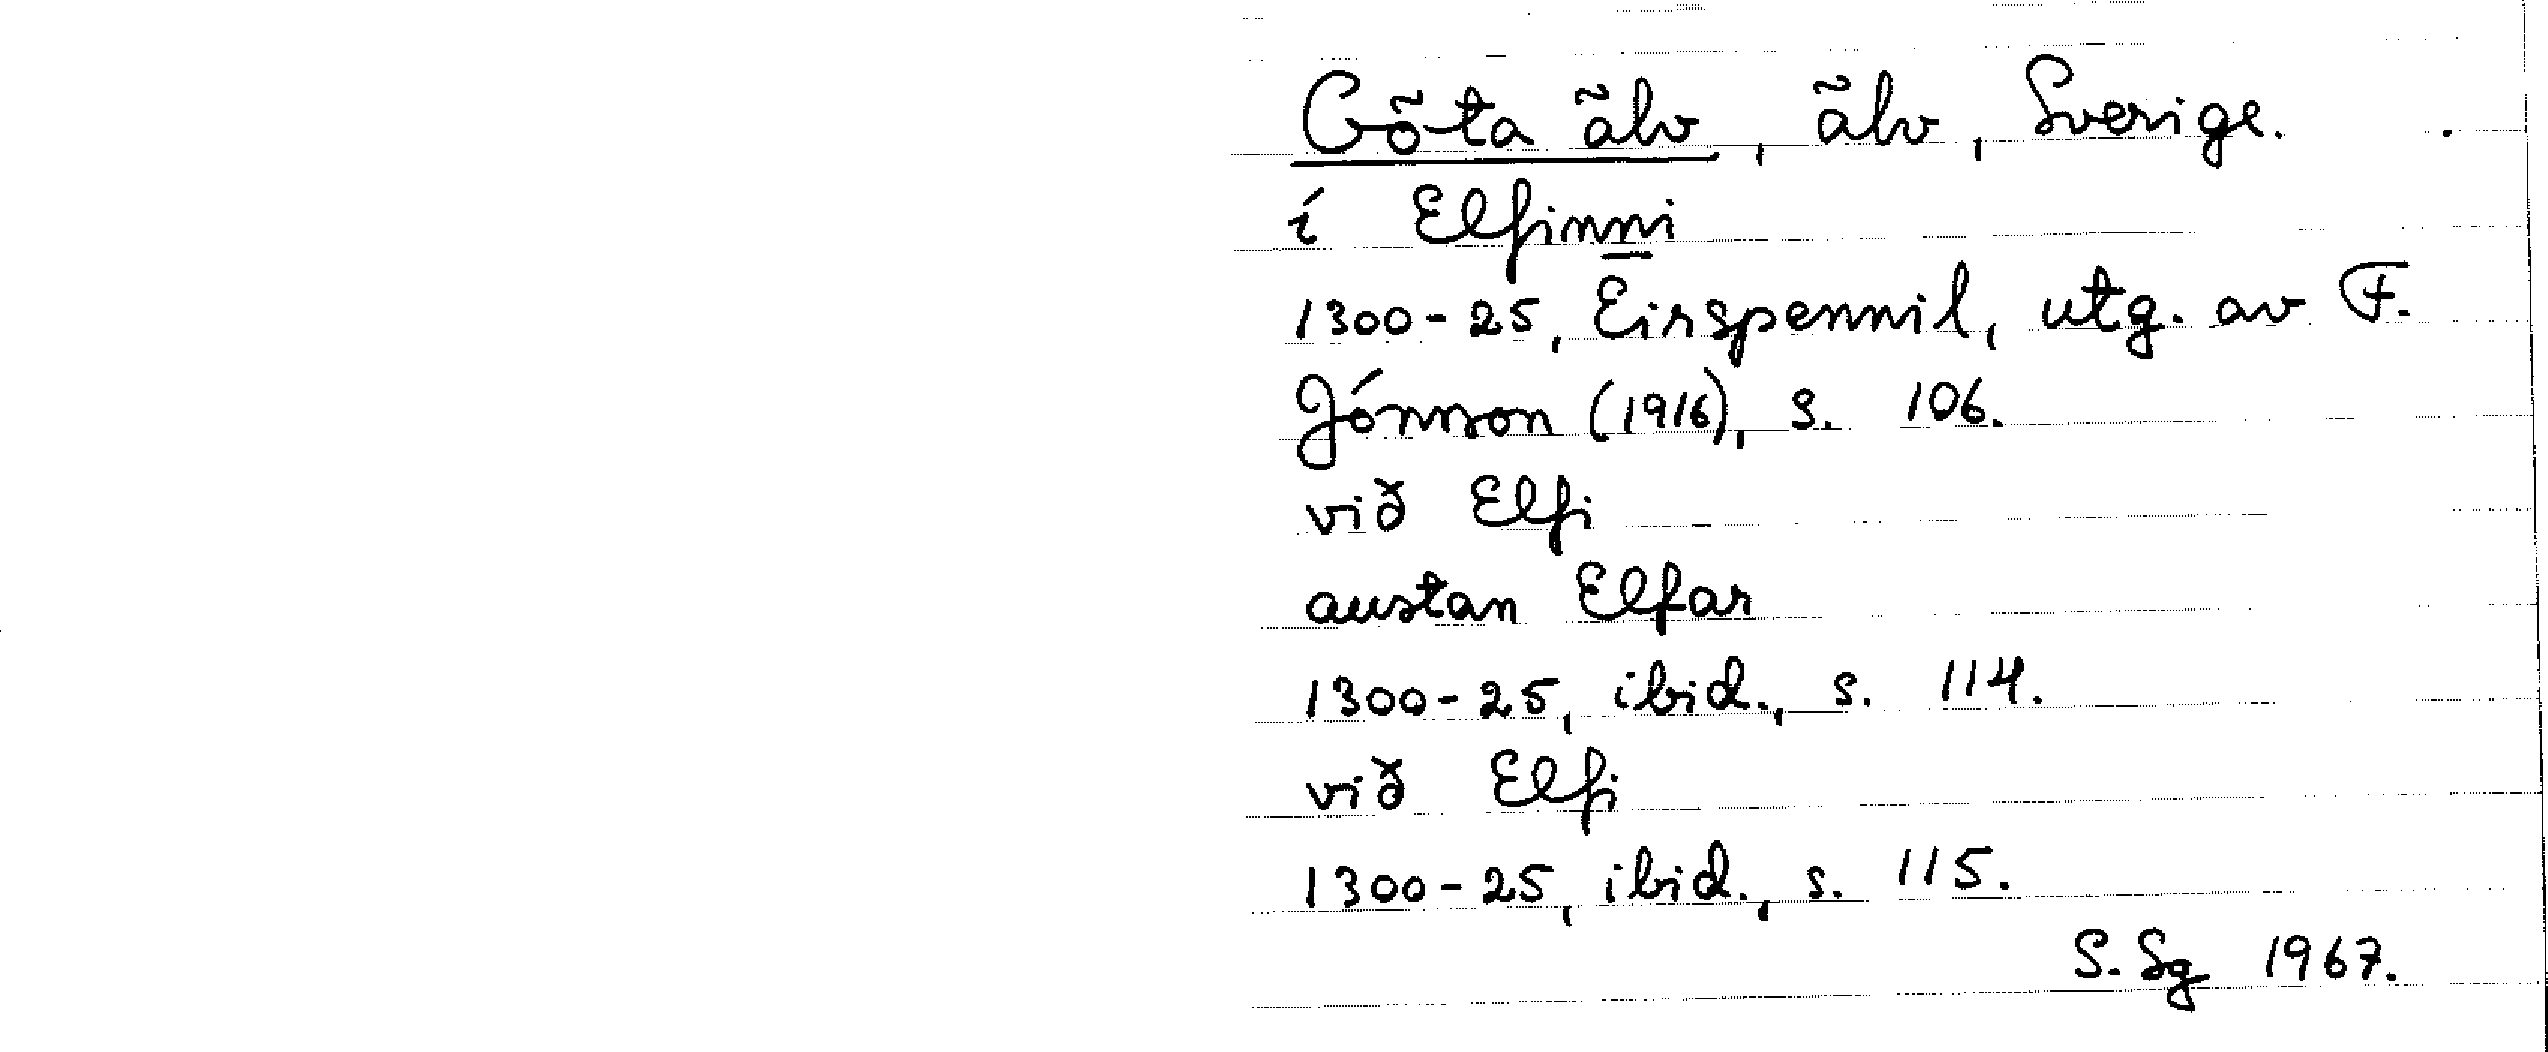 Göta älv, älv, Sverige.
í Elfinni
1300-25, Eirspennil, utg. av F.
Jónsson (1916), s. 106.
við Elfi
austan Elfar
1300-25, ibid., s. 114.
við Elfi
1300-25, ibid., s. 115.
S. Sg 1967.